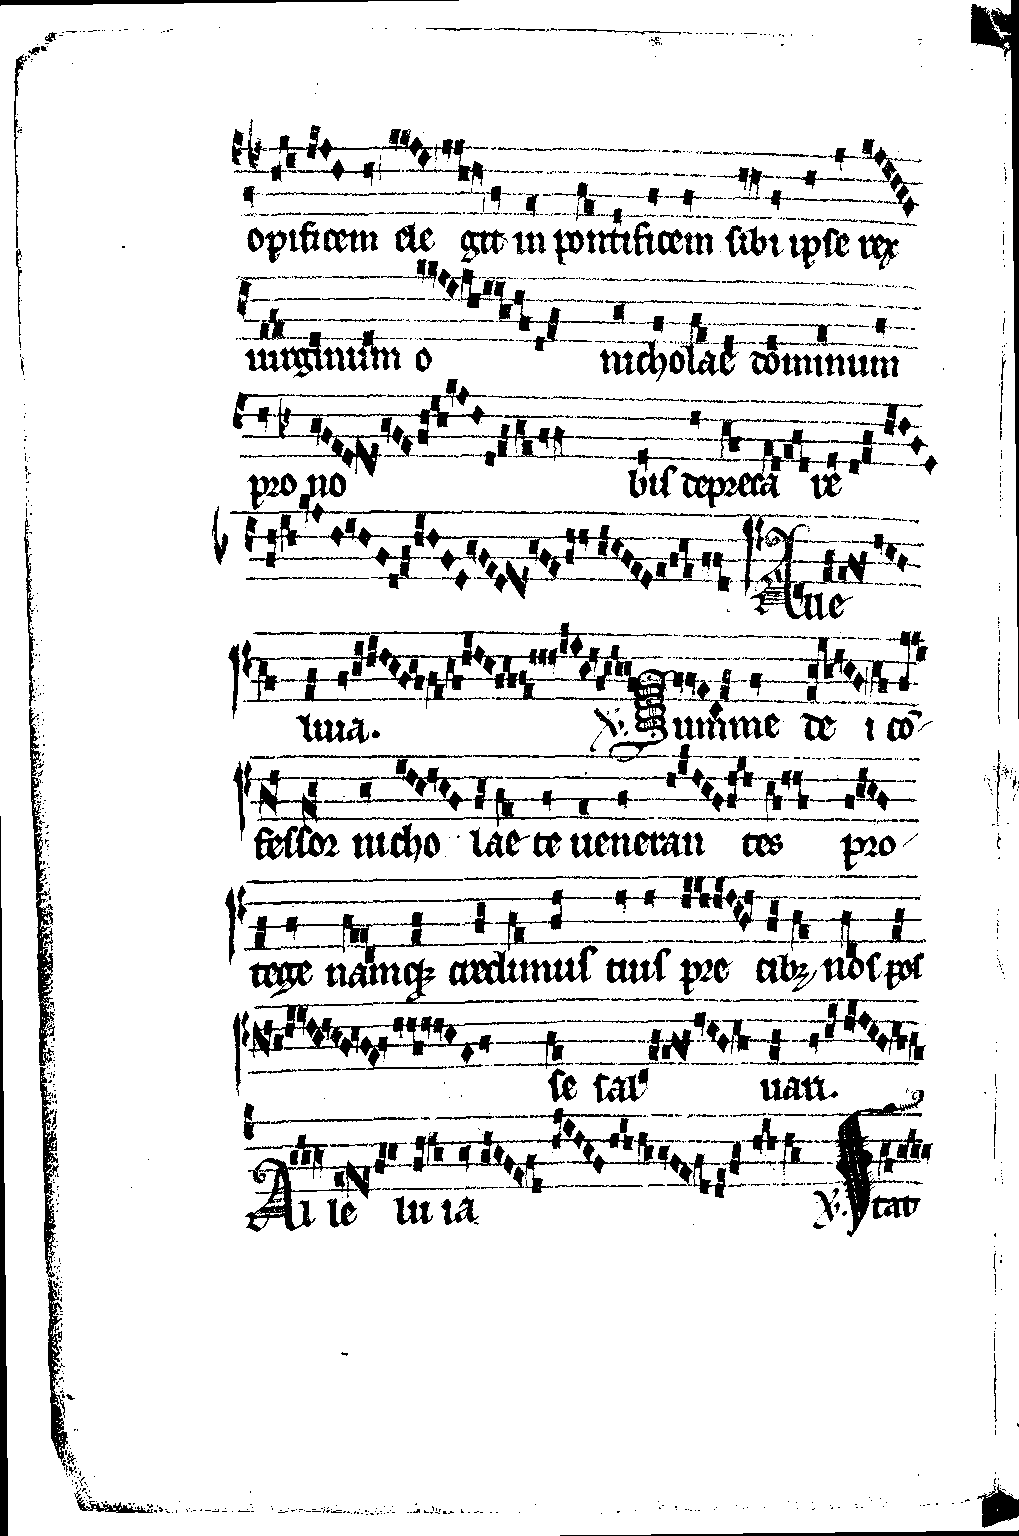 opificem ele git in pontificem sibi ipse rex
uirginum o nicholae dominum
pro no bis depreca re
A lle
luia. V. Summe de i co
fessor nicho lae te ueneran tes pro
tege namq; credimus tuis pre cibz nos pos
se sal uari.
Al le lu ia V.